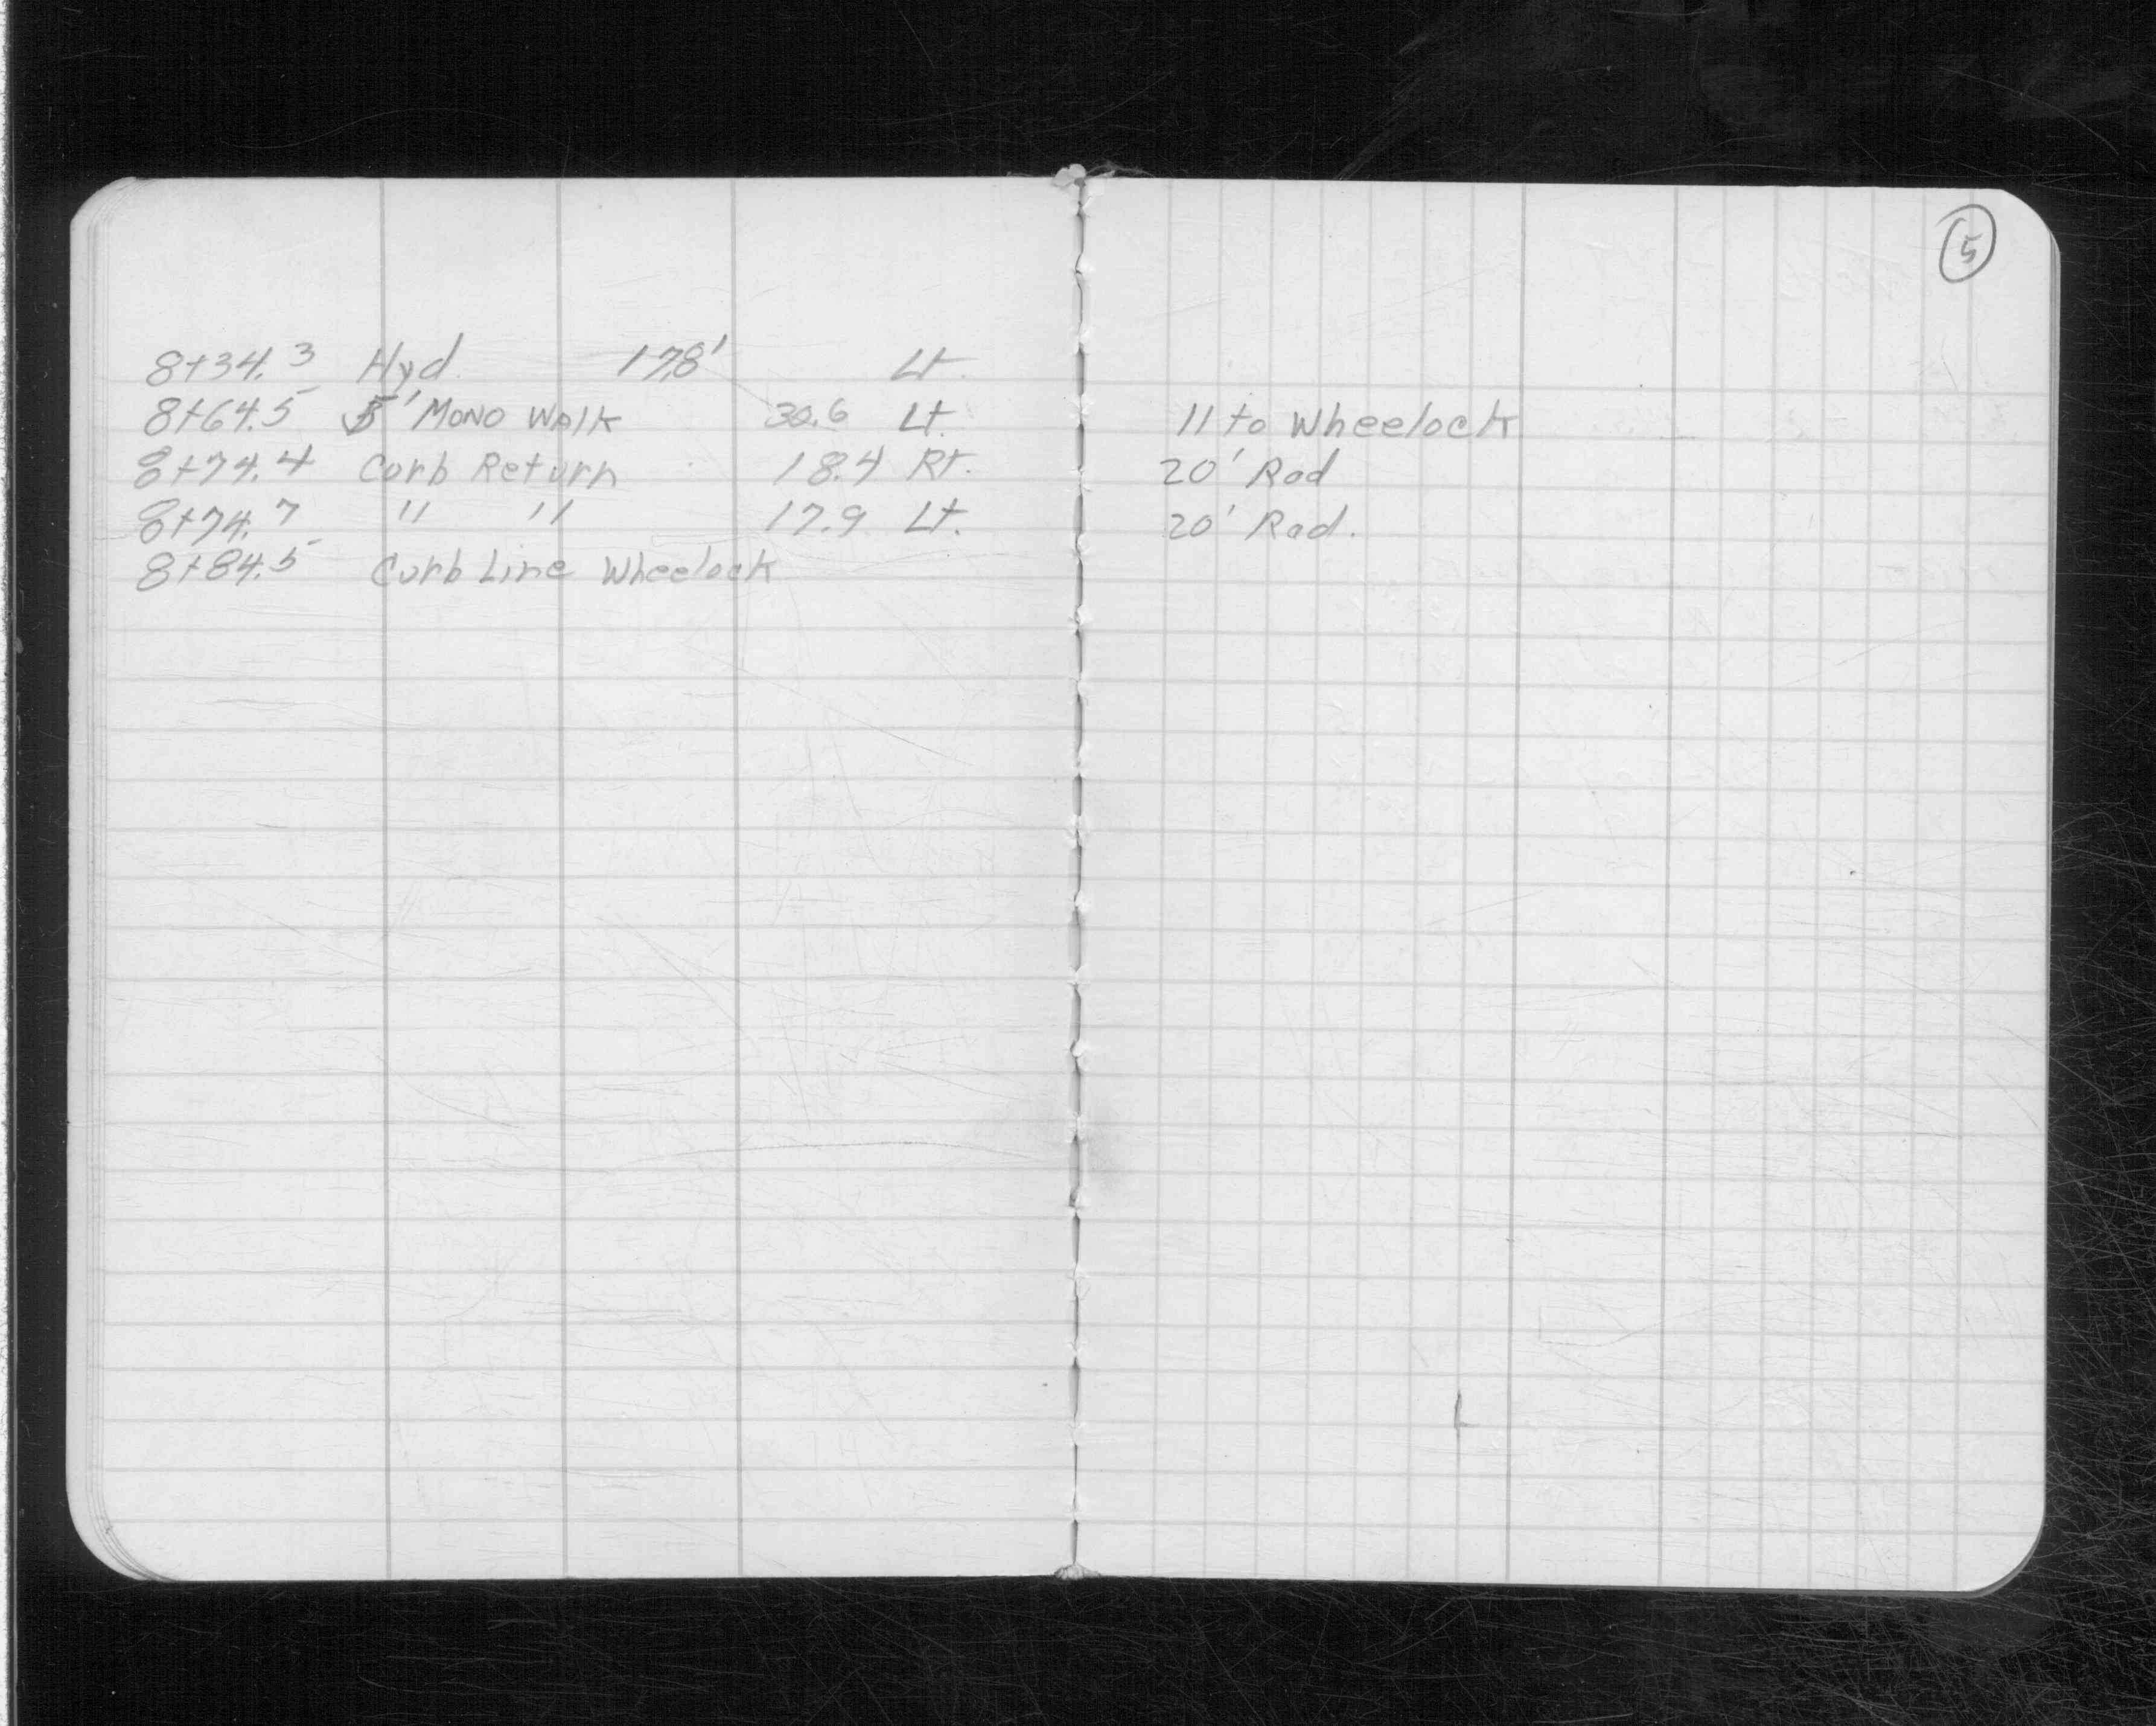 5
8+34.3 Hyd. 17.8' Lt.
8+64.5 5' Mono Walk 30.6 Lt. 11 to Wheelock
8+74.4 Curb Return 18.4 Rt. 20' Rad
8+74.7 " " 17.9 Lt. 20' Rad.
8+84.5 Curb Line Wheelock